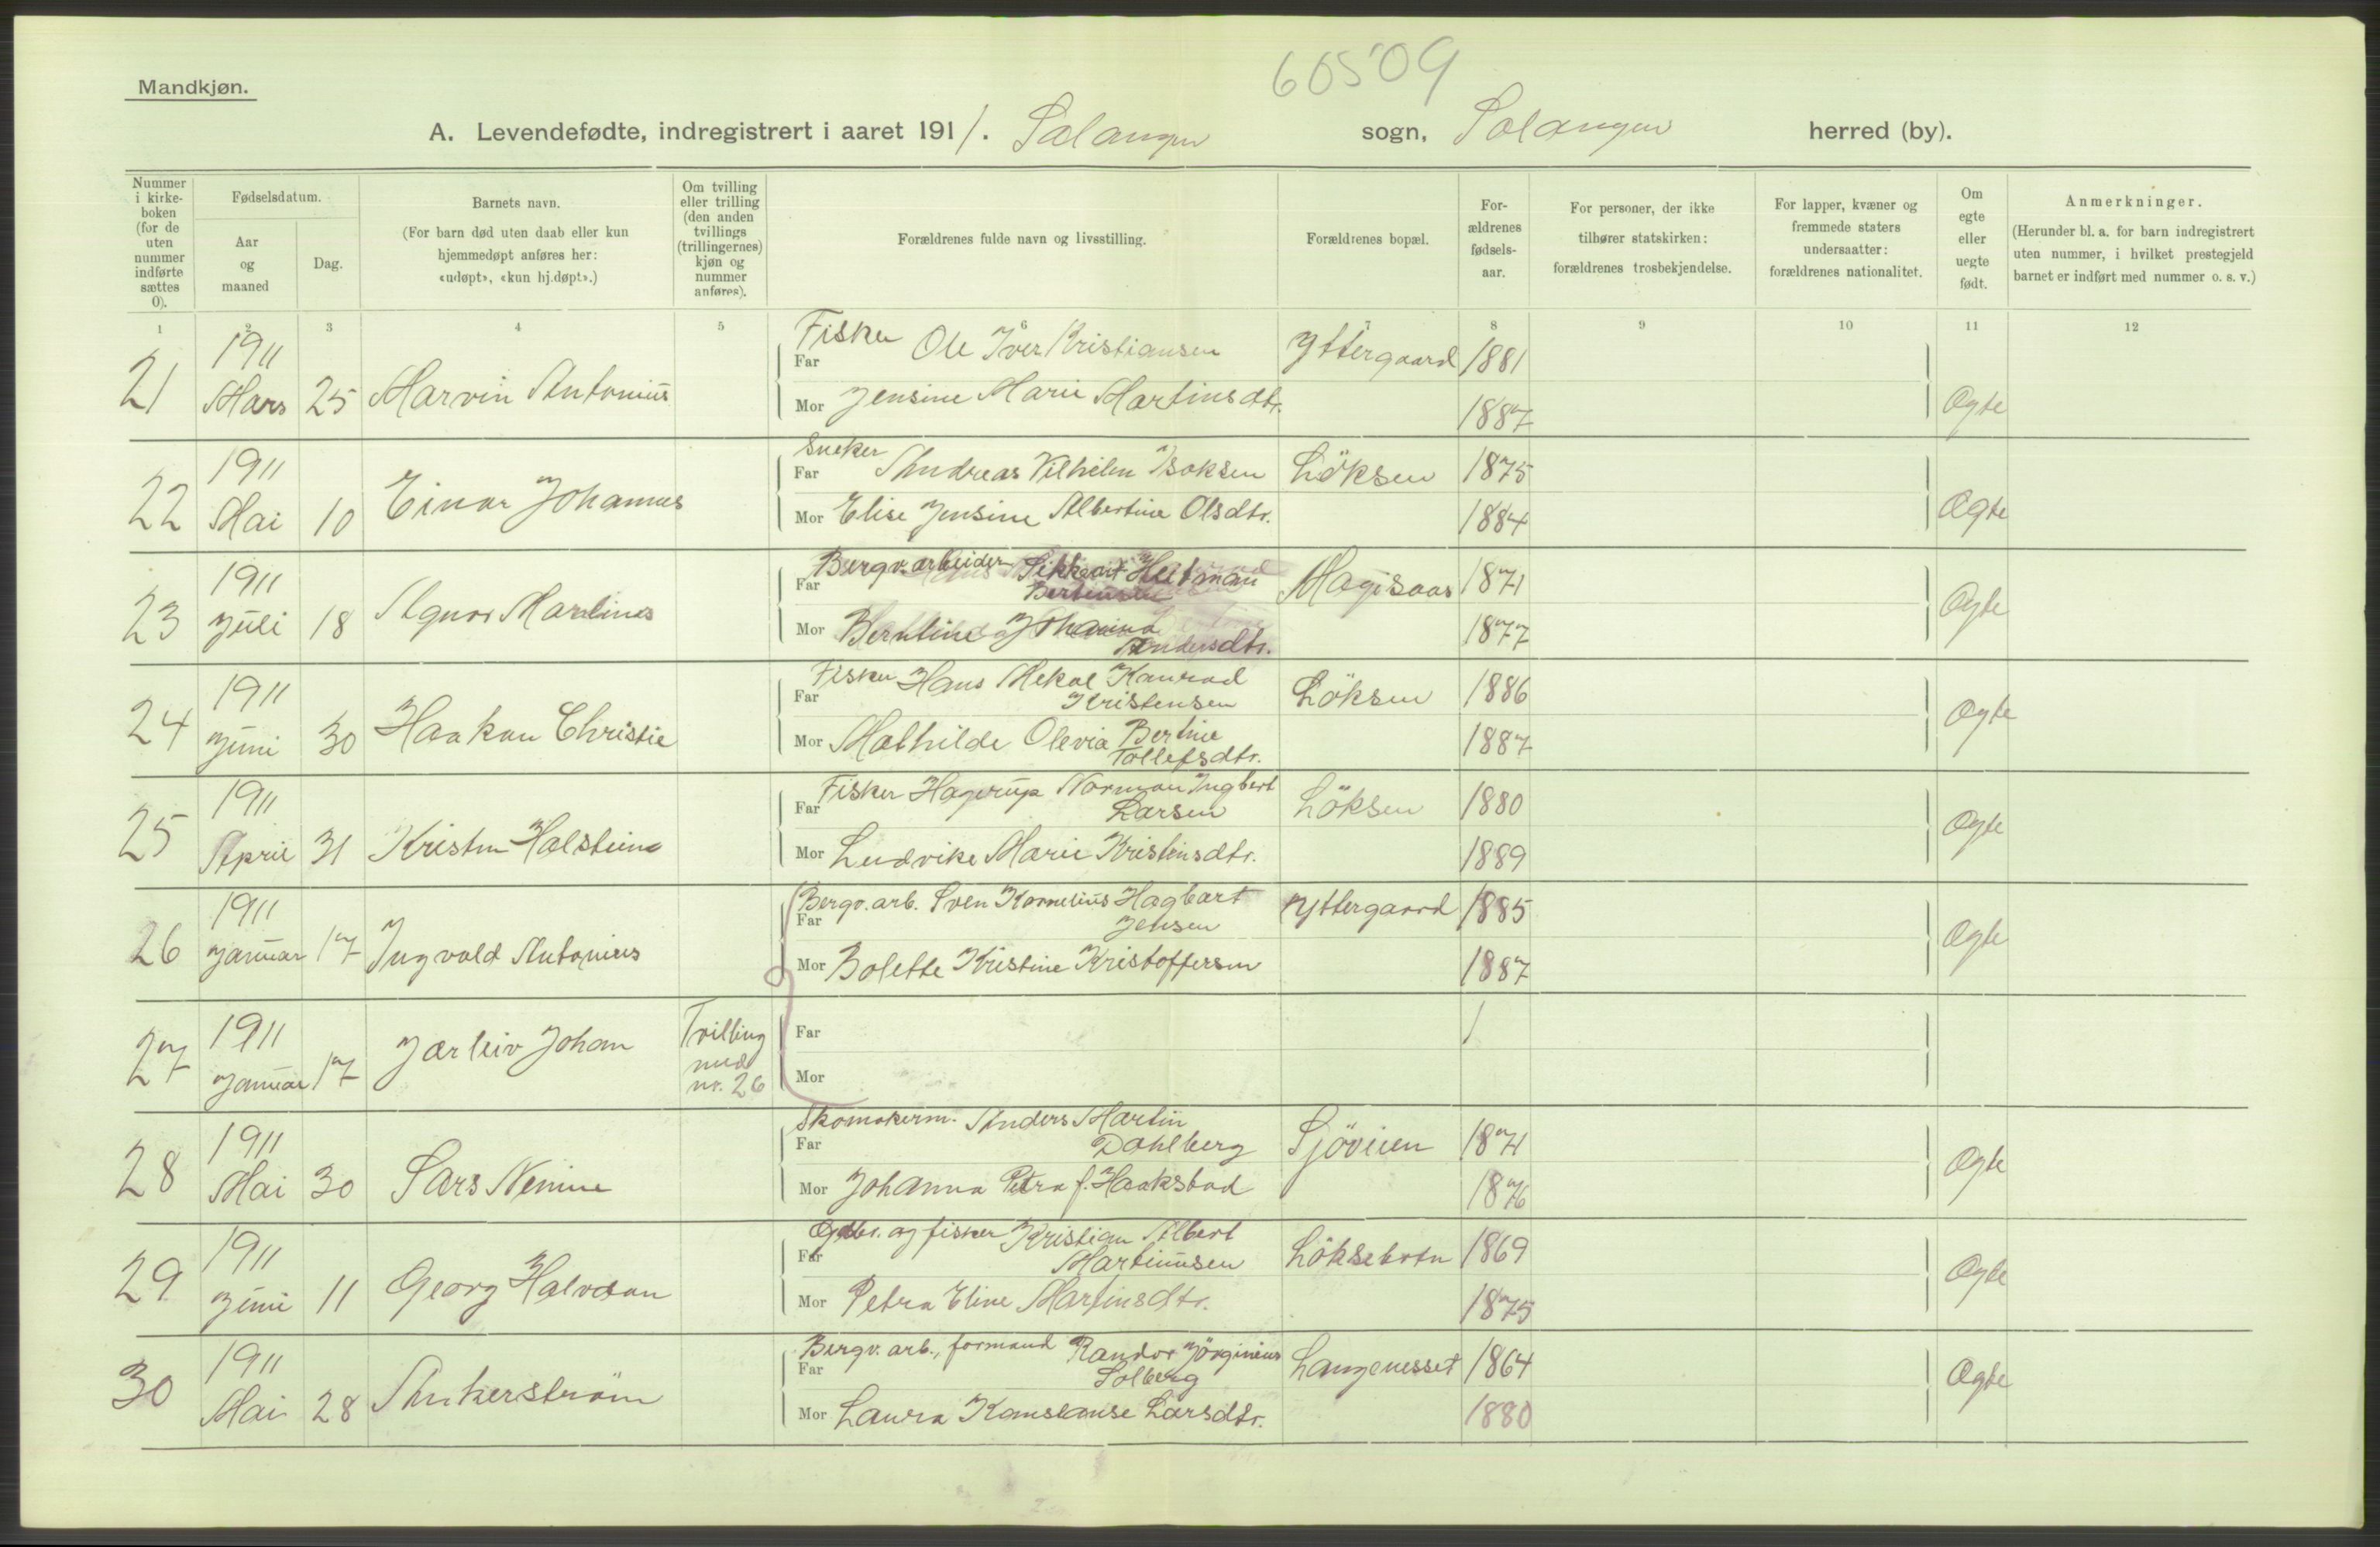 60509
Mandkjøn.
A. Levendefødte, indregistrert i aaret 1911. Salangen sogn, Salangen herred (by).
Nummer i kirke-boken (for de uten nummer indførte sættes 0).
Fødselsdatum.
Aar og maaned
Dag.
Barnets navn.
(For barn død uten daab eller kun hjemmedøpt anføres her: «udøpt», «kun hj.døpt».)
Om tvilling eller trilling (den anden tvillings (trillingernes) kjøn og nummer anføres).
Forældrenes fulde navn og livsstilling.
Forældrenes bopæl.
For-ældrenes fødsels-aar.
For personer, der ikke tilhører statskirken: forældrenes trosbekjendelse.
For lapper, kvæner og fremmede staters undersaatter: forældrenes nationalitet.
Om egte eller uegte født.
Anmerkninger.
(Herunder bl. a. for barn indregistrert uten nummer, i hvilket prestegjeld barnet er indført med nummer o. s. v.)
1 2 3 4 5 6 7 8 9 10 11 12
21 1911 Mars 25 Marvin Antonius
Fisker
Far Ole Iver Kristiansen Yttergaard 1881
Mor Jensine Marie Martinsdtr. 1887 Ægte
22 1911 Mai 10 Einar Johannes
Snekker
Far Andreas Vilhelm Isaksen Löksen 1875
Mor Elise Jensine Albertine Olsdtr. 1884 Ægte
23 1911 Juli 18 Agnor Martinus
Far Bergv.arbeider Sikkart Hetman
Bertensen Magisaas 1871
Mor Berntine Johanna
Andersdtr. 1877 Ægte
24 1911 Juni 30 Haakon Christie
Far Fisker Hans Mekal Konrad
Kristensen Löksen 1886
Mor Mathilde Olevia Bertine
Tollefsdtr. 1887 Ægte
25 1911 April 31 Kristen Halstein
Far Fisker Hagerup Norman Ingbert
Larsen Löksen 1880
Mor Ludvike Marie Kristensdtr. 1889 Ægte
26 1911 Januar 17 Ingvald Antonius
Far Bergv. arb. Sven Kornelius Hagbart
Jensen Yttergaard 1885
Mor Bolette Kristine Kristoffersen 1887 Ægte
27 1911 Januar 17 Jarleiv Johan Tvilling med nr. 26
Far
Mor
28 1911 Mai 30 Lars Nenine
Far Skomakerm. Anders Martin
Dahlberg Sjöveien 1871
Mor Johanna Petra f. Haakstad 1876 Ægte
29 1911 Juni 11 Georg Halvdan
Far Gdbr. og fisker Kristian Albert
Martinusen Löksebotn 1869
Mor Petra Eline Martinsdtr. 1875 Ægte
30 1911 Mai 28 Ankerström
Far Bergv. arb., formand Randor Jörginius
Solberg Langenesset 1864
Mor Laura Konstanse Larsdtr. 1880 Ægte